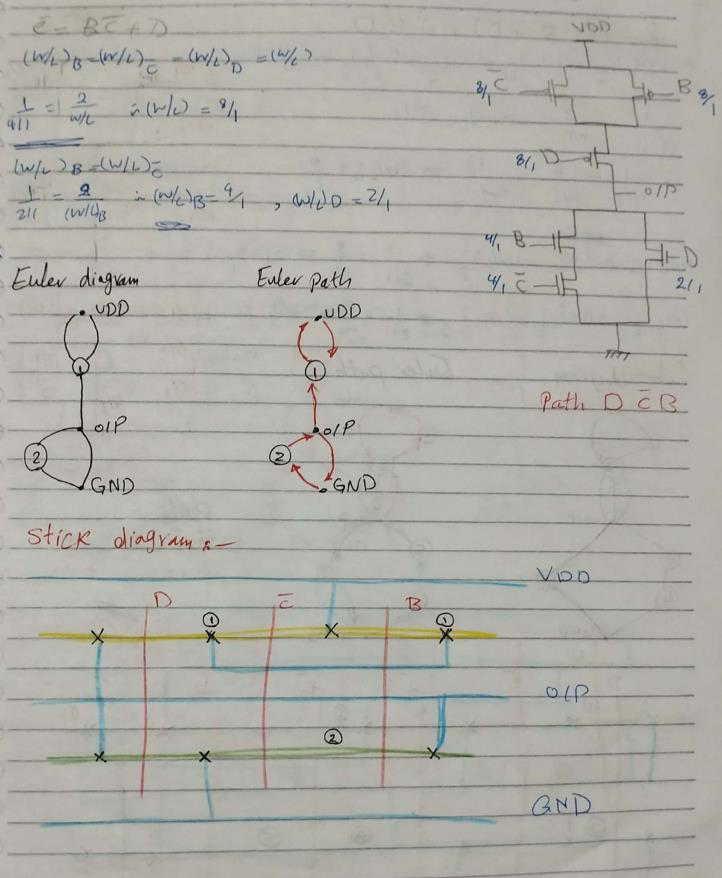 C̅ = BC̅ + D
(W/L)B = (W/L)C̅ = (W/L)D = (W/L)
1/(4/1) = 2/(W/L) ∴ (W/L) = 8/1
(W/L)B = (W/L)C̅
1/(2/1) = 2/(W/L)B ∴ (W/L)B = 4/1 , (W/L)D = 2/1
VDD
8/1 C̅ B 8/1
8/1 D
O/P
4/1 B D
4/1 C̅ 2/1
Euler diagram Euler path
VDD VDD
1 1
Path D C̅ B
O/P O/P
2 2
GND GND
Stick diagram :-
VDD
D C̅ B
1 1
O/P
2
GND